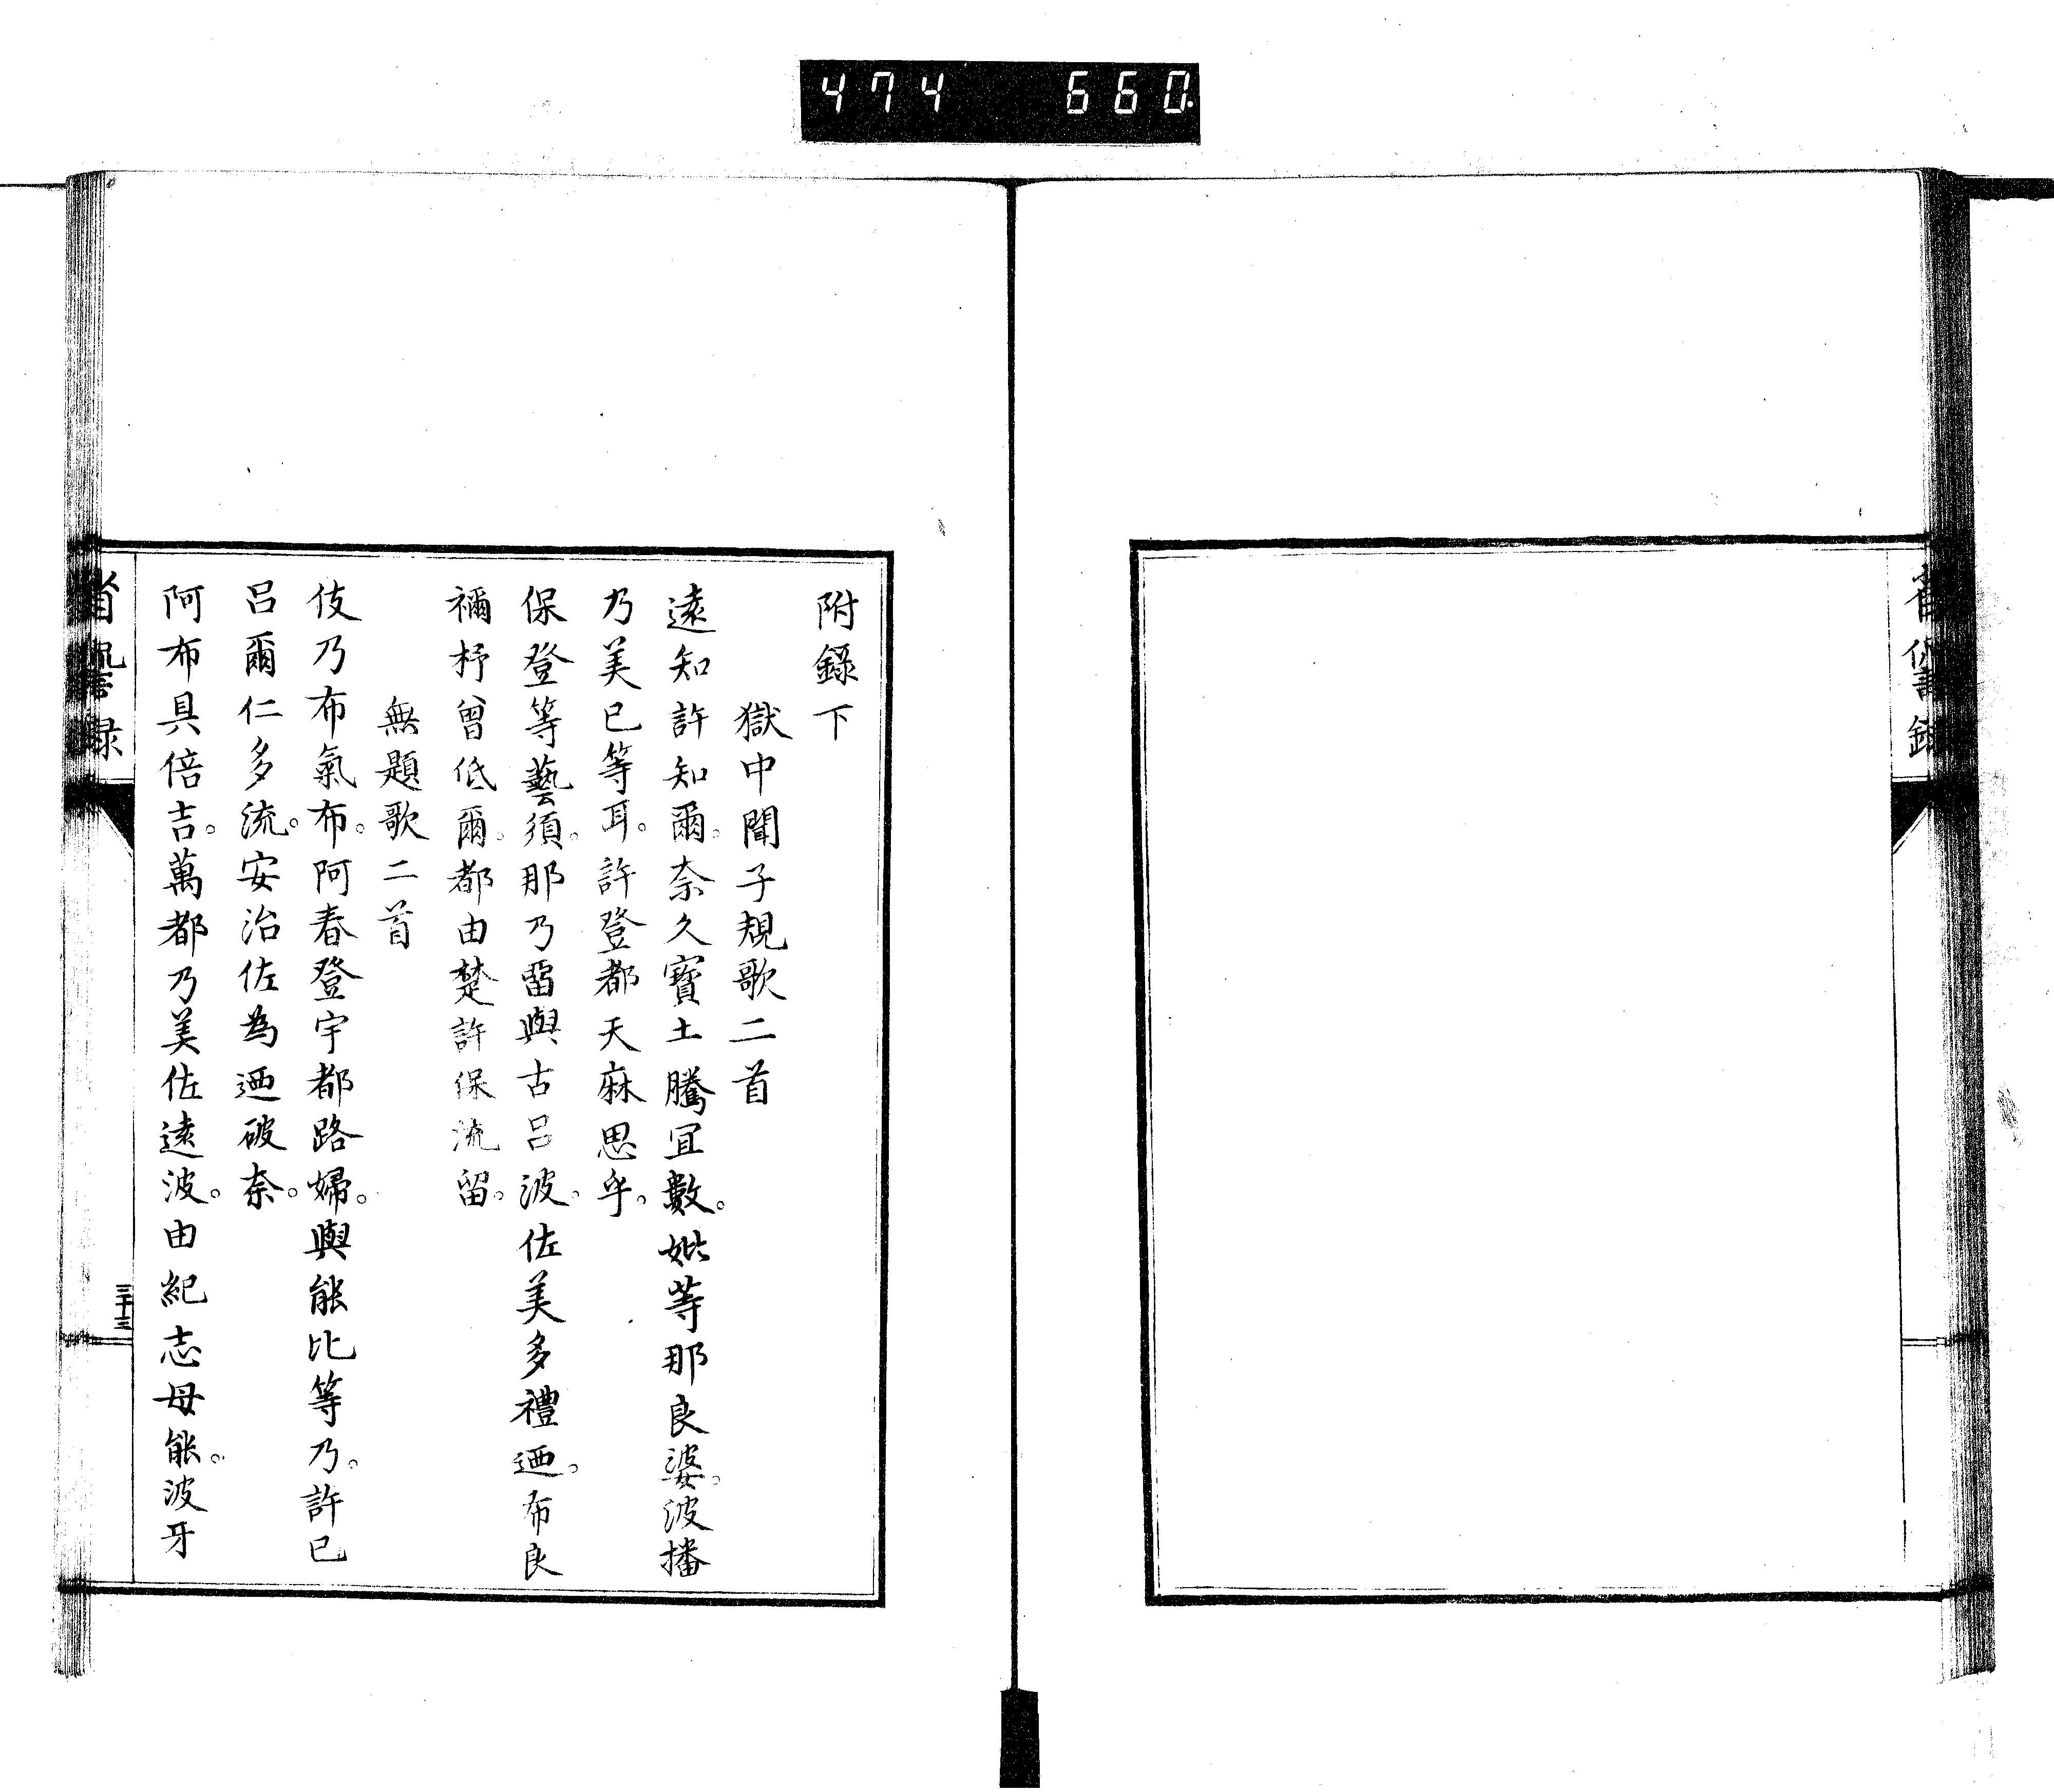 474 660.
省諐録
附錄下
獄中聞子規歌二首
遠知許知爾。奈久寶土騰冝數。妣等那良婆。波播
乃美已等耳。許登都天麻思乎。
保登等藝須。那乃畱與古呂波。佐美多禮迺。布良
禰杼曾低爾。都由楚許保流留。
無題歌二首
伎乃布氣布。阿春登宇都路婦。與能比等乃。許已
呂爾仁多流。安治佐為迺破奈。
阿布具倍吉。萬都乃美佐遠波。由紀志母能。波牙
省諐録
三十三